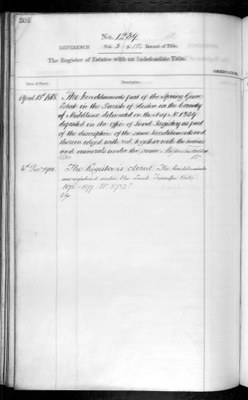 No. 1239
REFERENCE Vol. 3 p. 182 Record of Title.
The Register of Estates with an Indefeasible Title.
Date of Entry.
Description.
April 18th 1868
The hereditaments part of the Spring Grove
Estate in the Parish of Heston in the County
of Middlesex delineated on the map No. 1239
deposited in the Office of Land Registry as part
of the description of the same hereditaments and
thereon edged with red together with the mines
and minerals under the same
1900
The Register is closed. The hereditaments
are registered under the Land Transfer Acts
1875 & 1897